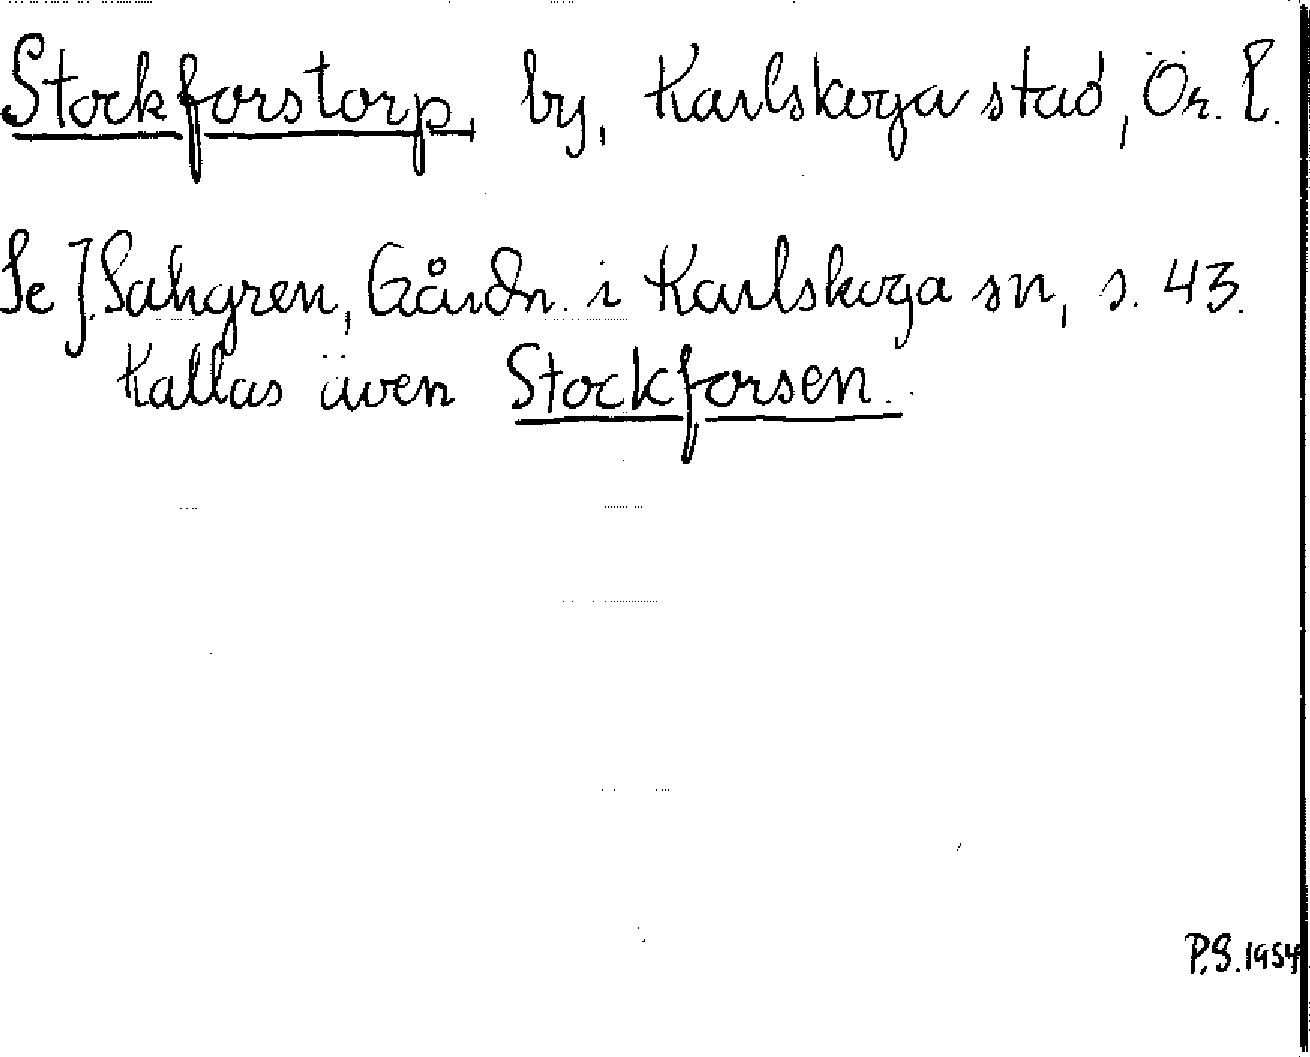 Stockforstorp, by, Karlskoga stad, Ör. l.
Se J. Sahgren, Gårdn. i Karlskoga sn, s. 43.
Kallas även Stockforsen.
P.S. 1954